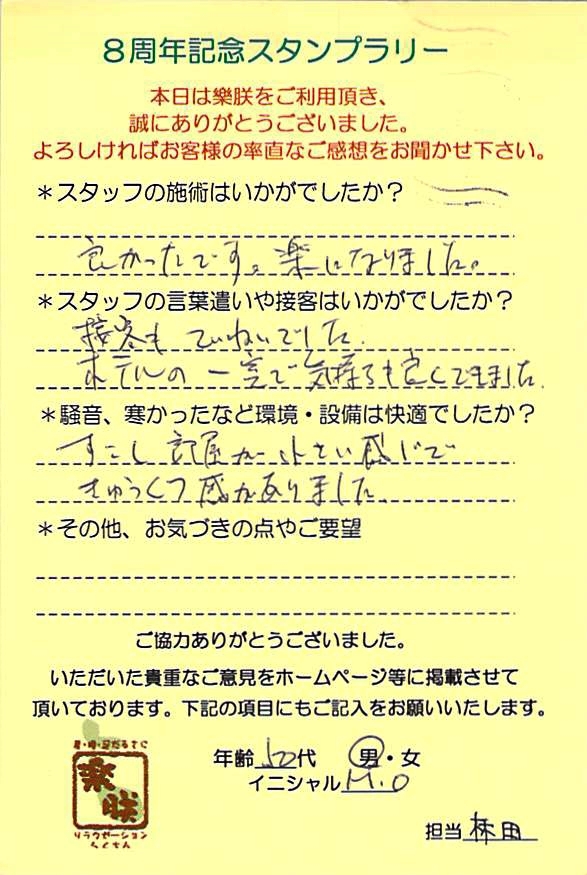 8周年記念スタンプラリー
本日は樂朕をご利用頂き、
誠にありがとうございました。
よろしければお客様の率直なご感想をお聞かせ下さい。
＊スタッフの施術はいかがでしたか？
良かったです。楽になりました。
＊スタッフの言葉遣いや接客はいかがでしたか？
接客もていねいでした。
ホテルの一室で気持ちも良くできました。
＊騒音、寒かったなど環境・設備は快適でしたか？
すこし部屋が小さい感じで
きゅうくつ感がありました。
＊その他、お気づきの点やご要望
ご協力ありがとうございました。
いただいた貴重なご意見をホームページ等に掲載させて
頂いております。下記の項目にもご記入をお願いいたします。
年齢 50代 男・女
イニシャル M.O
樂朕
リラクゼーション
らくちん
担当 林田